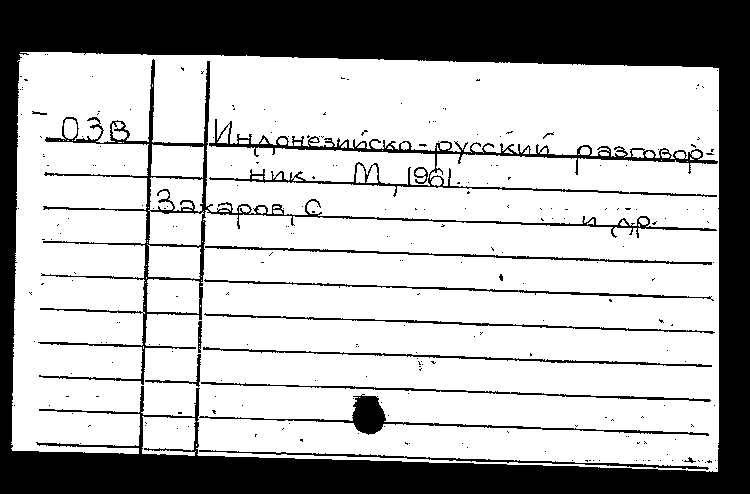 03В Индонезийско-русский разговор-
ник. М, 1961.
Захаров, С и др.